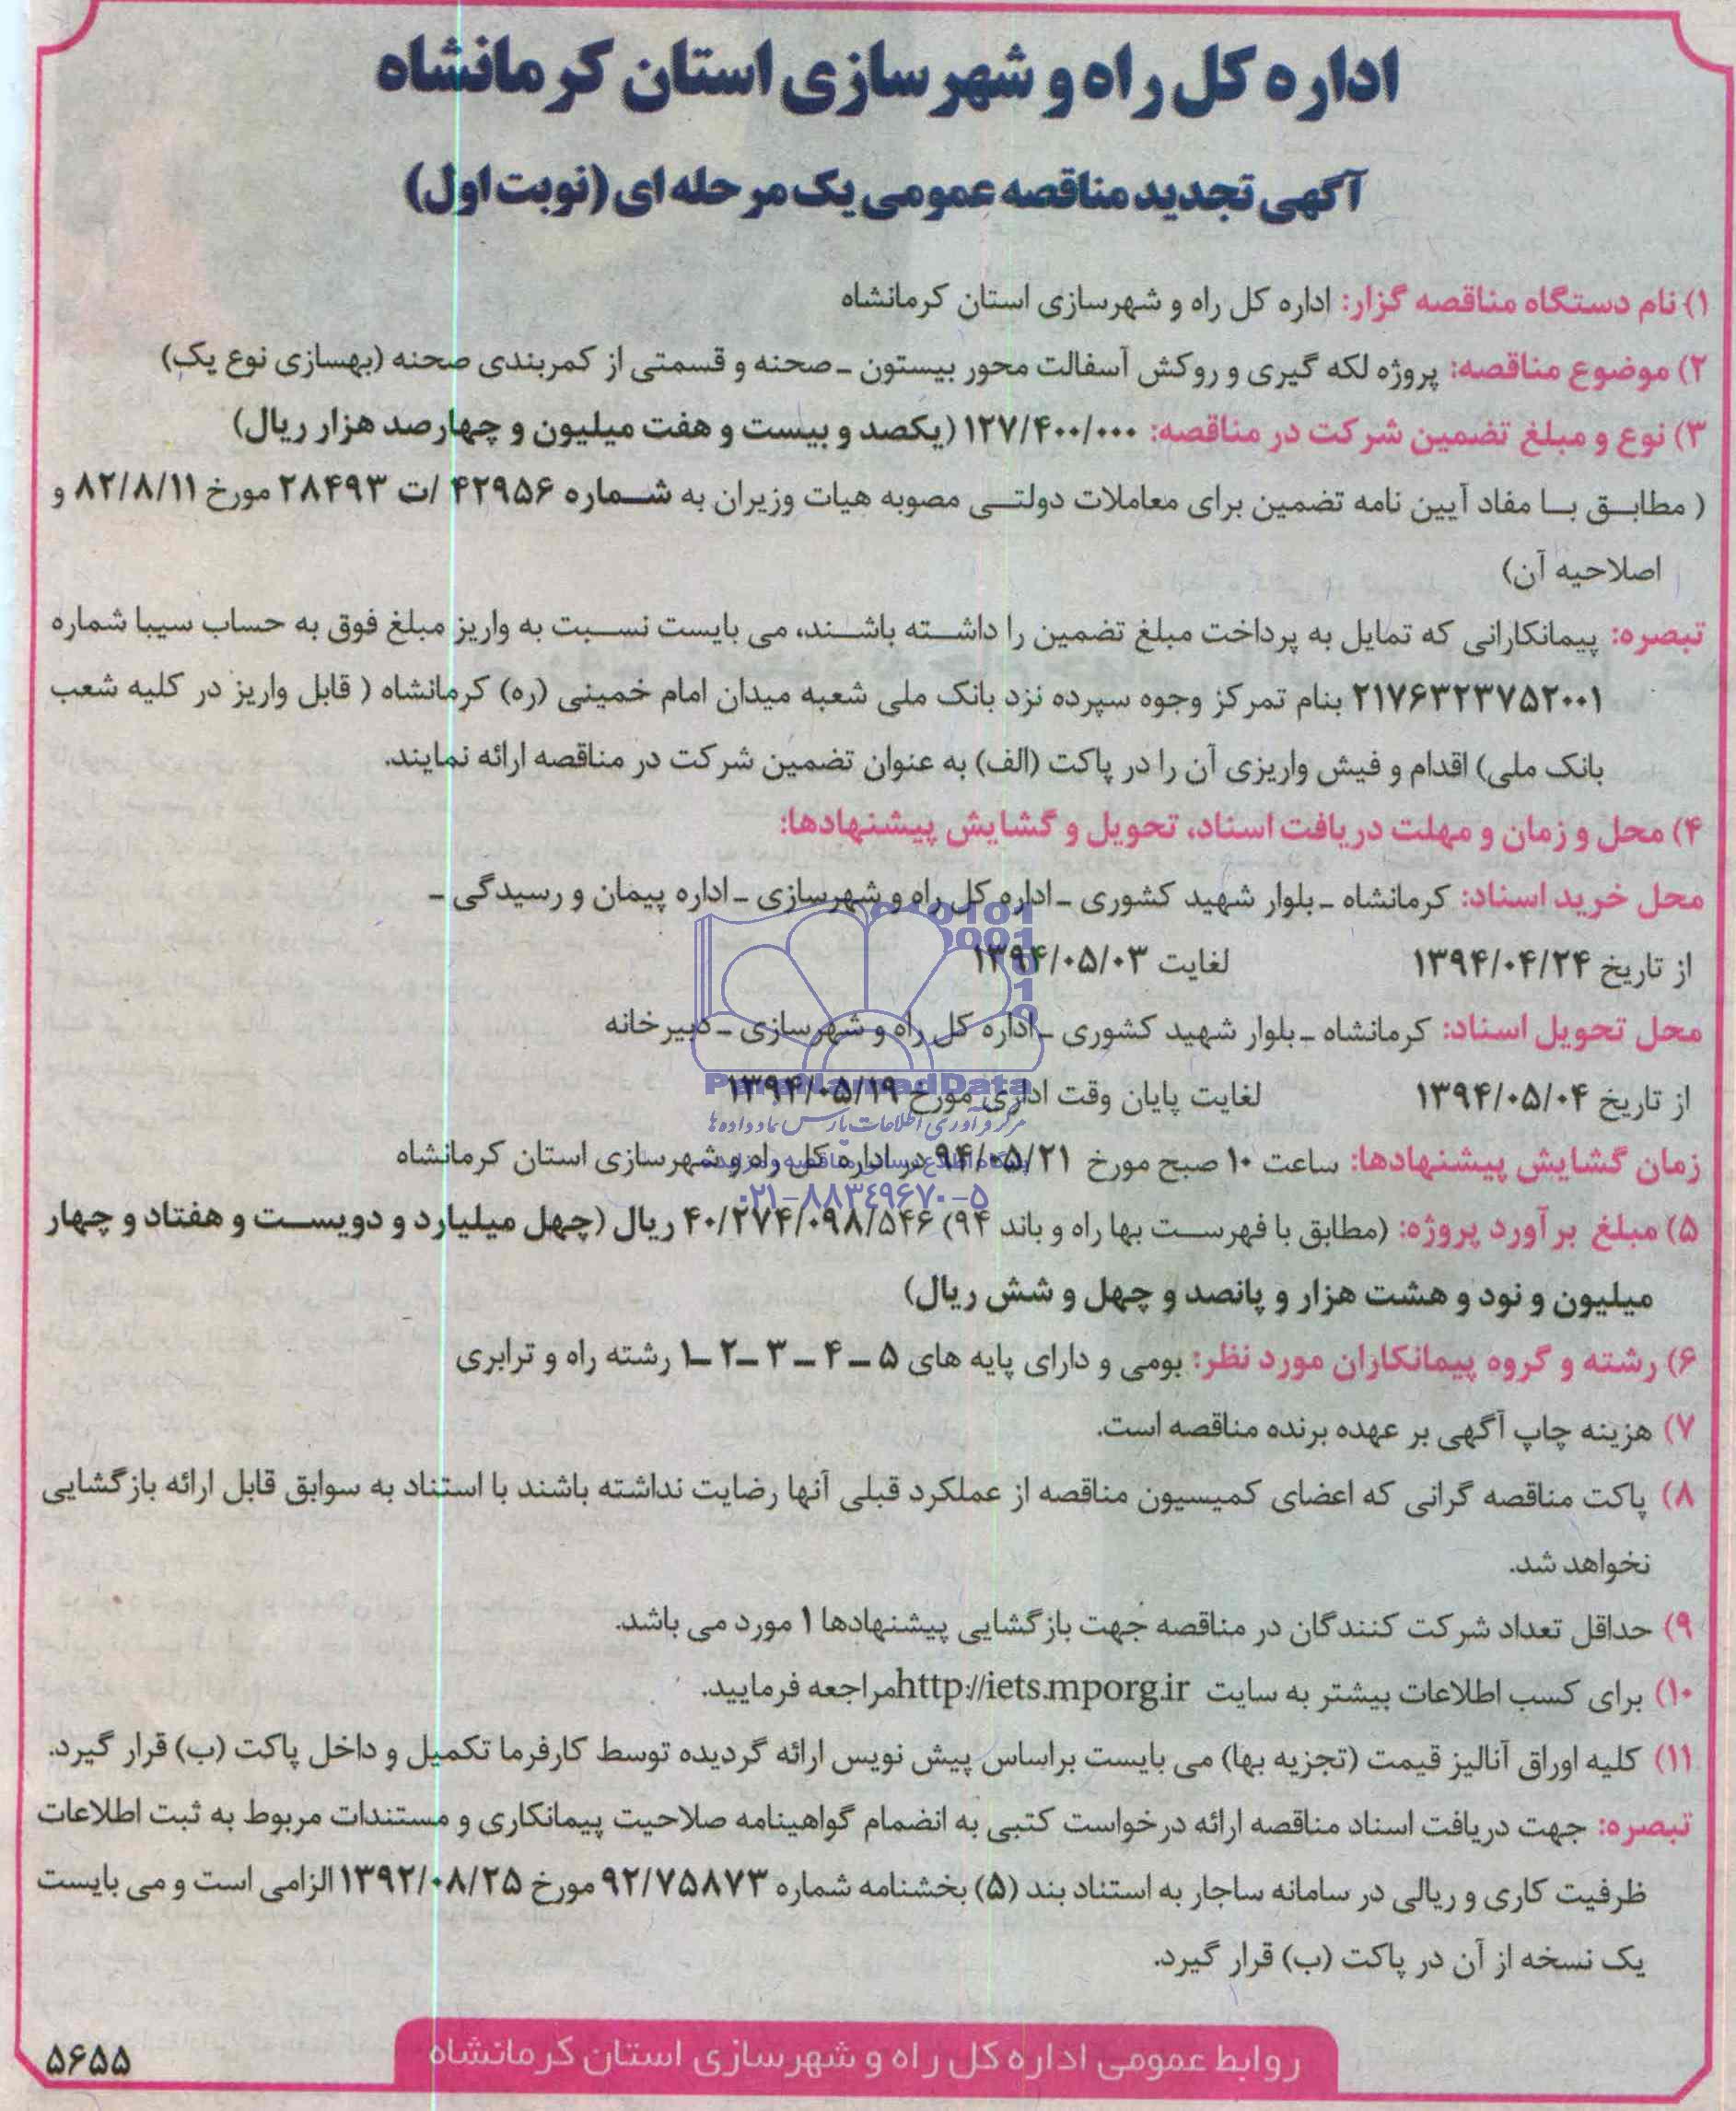 اداره کل راه و شهرسازی استان کرمانشاه
آگهی تجدید مناقصه عمومی یک مرحله ای (نوبت اول)
۱) نام دستگاه مناقصه گزار: اداره کل راه و شهرسازی استان کرمانشاه
۲) موضوع مناقصه: پروژه لکه گیری و روکش آسفالت محور بیستون ـ صحنه و قسمتی از کمربندی صحنه (بهسازی نوع یک)
۳) نوع و مبلغ تضمین شرکت در مناقصه: ۱۲۷/۴۰۰/۰۰۰ (یکصد و بیست و هفت میلیون و چهارصد هزار ریال)
( مطابق با مفاد آیین نامه تضمین برای معاملات دولتی مصوبه هیات وزیران به شماره ۴۲۹۵۶ /ت ۲۸۴۹۳ مورخ ۸۲/۸/۱۱ و
اصلاحیه آن)
تبصره: پیمانکارانی که تمایل به پرداخت مبلغ تضمین را داشته باشند، می بایست نسبت به واریز مبلغ فوق به حساب سیبا شماره
۲۱۷۶۳۲۳۷۵۲۰۰۱ بنام تمرکز وجوه سپرده نزد بانک ملی شعبه میدان امام خمینی (ره) کرمانشاه ( قابل واریز در کلیه شعب
بانک ملی) اقدام و فیش واریزی آن را در پاکت (الف) به عنوان تضمین شرکت در مناقصه ارائه نمایند.
۴) محل و زمان و مهلت دریافت اسناد، تحویل و گشایش پیشنهادها:
محل خرید اسناد: کرمانشاه ـ بلوار شهید کشوری ـ اداره کل راه و شهرسازی ـ اداره پیمان و رسیدگی ـ
از تاریخ ۱۳۹۴/۰۴/۲۴ لغایت ۱۳۹۴/۰۵/۰۳
محل تحویل اسناد: کرمانشاه ـ بلوار شهید کشوری ـ اداره کل راه و شهرسازی ـ دبیرخانه
از تاریخ ۱۳۹۴/۰۵/۰۴ لغایت پایان وقت اداری مورخ ۱۳۹۴/۰۵/۱۹
ParsNamadData
مرکز فرآوری اطلاعات پارس نماد داده ها
زمان گشایش پیشنهادها: ساعت ۱۰ صبح مورخ ۹۴/۰۵/۲۱ در اداره کل راه و شهرسازی استان کرمانشاه
۰۲۱-۸۸۳۴۹۶۷۰-۵
۵) مبلغ برآورد پروژه: (مطابق با فهرست بها راه و باند ۹۴) ۴۰/۲۷۴/۰۹۸/۵۴۶ ریال (چهل میلیارد و دویست و هفتاد و چهار
میلیون و نود و هشت هزار و پانصد و چهل و شش ریال)
۶) رشته و گروه پیمانکاران مورد نظر: بومی و دارای پایه های ۵ ـ ۴ ـ ۳ ـ ۲ ـ ۱ رشته راه و ترابری
۷) هزینه چاپ آگهی بر عهده برنده مناقصه است.
۸) پاکت مناقصه گرانی که اعضای کمیسیون مناقصه از عملکرد قبلی آنها رضایت نداشته باشند با استناد به سوابق قابل ارائه بازگشایی
نخواهد شد.
۹) حداقل تعداد شرکت کنندگان در مناقصه جهت بازگشایی پیشنهادها ۱ مورد می باشد.
۱۰) برای کسب اطلاعات بیشتر به سایت http://iets.mporg.ir مراجعه فرمایید.
۱۱) کلیه اوراق آنالیز قیمت (تجزیه بها) می بایست براساس پیش نویس ارائه گردیده توسط کارفرما تکمیل و داخل پاکت (ب) قرار گیرد.
تبصره: جهت دریافت اسناد مناقصه ارائه درخواست کتبی به انضمام گواهینامه صلاحیت پیمانکاری و مستندات مربوط به ثبت اطلاعات
ظرفیت کاری و ریالی در سامانه ساجار به استناد بند (۵) بخشنامه شماره ۹۲/۷۵۸۷۳ مورخ ۱۳۹۲/۰۸/۲۵ الزامی است و می بایست
یک نسخه از آن در پاکت (ب) قرار گیرد.
روابط عمومی اداره کل راه و شهرسازی استان کرمانشاه
۵۶۵۵